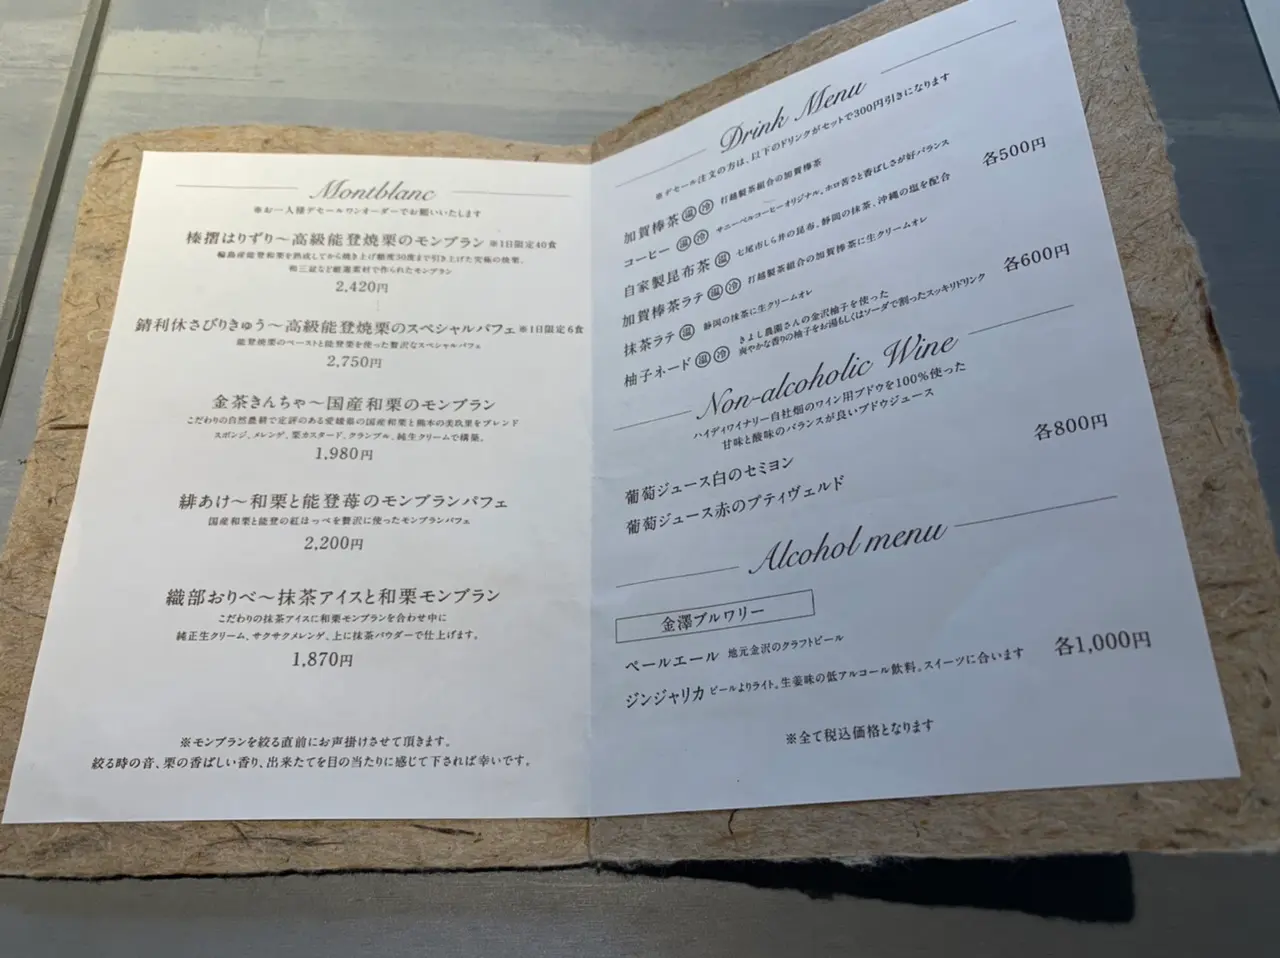 Montblanc
※お一人様デセールワンオーダーでお願いいたします
榛摺はりずり～高級能登焼栗のモンブラン ※1日限定40食
輪島産能登和栗を熟成してから焼き上げ糖度30度まで引き上げた究極の焼栗、
和三盆など厳選素材で作られたモンブラン
2,420円
錆利休さびりきゅう～高級能登焼栗のスペシャルパフェ ※1日限定6食
能登焼栗のペーストと能登栗を使った贅沢なスペシャルパフェ
2,750円
金茶きんちゃ～国産和栗のモンブラン
こだわりの自然農耕で定評のある愛媛県の国産和栗と熊本の美玖里をブレンド
スポンジ、メレンゲ、栗カスタード、クランブル、純生クリームで構築。
1,980円
緋あけ～和栗と能登苺のモンブランパフェ
国産和栗と能登の紅ほっぺを贅沢に使ったモンブランパフェ
2,200円
織部おりべ～抹茶アイスと和栗モンブラン
こだわりの抹茶アイスに和栗モンブランを合わせ中に
純正生クリーム、サクサクメレンゲ、上に抹茶パウダーで仕上げます。
1,870円
※モンブランを絞る直前にお声掛けさせて頂きます。
絞る時の音、栗の香ばしい香り、出来たてを目の当たりに感じて下されば幸いです。
Drink Menu
※デセール注文の方は、以下のドリンクがセットで300円引きになります
加賀棒茶 温 冷 打越製茶組合の加賀棒茶
各500円
コーヒー 温 冷 サニーベルコーヒーオリジナル。ホロ苦さと香ばしさが好バランス
自家製昆布茶 温 七尾市しら井の昆布、静岡の抹茶、沖縄の塩を配合
加賀棒茶ラテ 温 冷 打越製茶組合の加賀棒茶に生クリームオレ
各600円
抹茶ラテ 温 静岡の抹茶に生クリームオレ
柚子ネード 温 冷 きよし農園さんの金沢柚子を使った
爽やかな香りの柚子をお湯もしくはソーダで割ったスッキリドリンク
Non-alcoholic Wine
ハイディワイナリー自社畑のワイン用ブドウを100%使った
甘味と酸味のバランスが良いブドウジュース
葡萄ジュース白のセミヨン
各800円
葡萄ジュース赤のプティヴェルド
Alcohol menu
金澤ブルワリー
ペールエール 地元金沢のクラフトビール
ジンジャリカ ビールよりライト。生姜味の低アルコール飲料。スイーツに合います
各1,000円
※全て税込価格となります